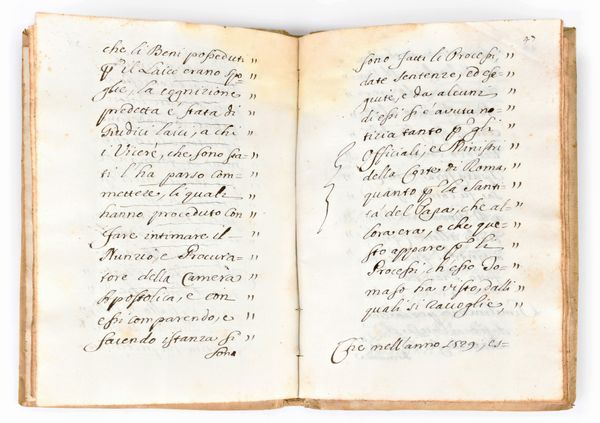 che li Beni posseduti "
p il Laici erano spo= "
glie, la cognizione "
predetta è stata di "
Giudici laici, a chi "
i Vicerè, che sono sta= "
ti l'ha parso com= "
mettere, li quali "
hanno proceduto con "
fare intimare il "
Nunzio, e Procura= "
tore della Camera "
Apostolica, e con "
essi comparendo, e "
facendo istanza si "
sono
sono fatti li Processi, "
date sentenze, ed ese= "
quite, e da alcuni "
di essi si è avuta no= "
tizia tanto p gli "
Officiali, e Ministri "
della Corte di Roma, "
quanto p la Santi= "
tà del Papa, che al= "
lora era, e che que= "
sto appare p li "
Processi, ch'esso To= "
maso ha visto, dalli "
quali si raccoglie, "
Che nell'anno 1529, es=